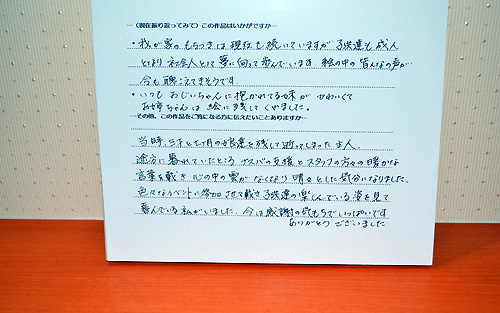 …（現在振り返ってみて）この作品はいかがですか…
・我が家のもちつきは現在も続いていますが子供達も成人
となり社会人となって夢に向って歩んでいます 絵の中の皆んなの声が
今も聴こえてきそうです
・いつもおじいちゃんに抱かれてる妹がかわいくて
お姉ちゃんは絵に残してくれました。
…その他、この作品をご覧になる方に伝えたいことありますか…
当時、5才と7ヶ月の娘達を残して逝ってしまった主人、
途方に暮れていたところ ナスバの支援とスタッフの方々の暖かな
言葉を戴き 心の中の雲がなくなり 晴々とした気分になりました。
色々なイベントに参加させて戴き子供達の楽しんでいる姿を見て
喜んでいる私がいました。今は感謝の気もちでいっぱいです
ありがとうございました